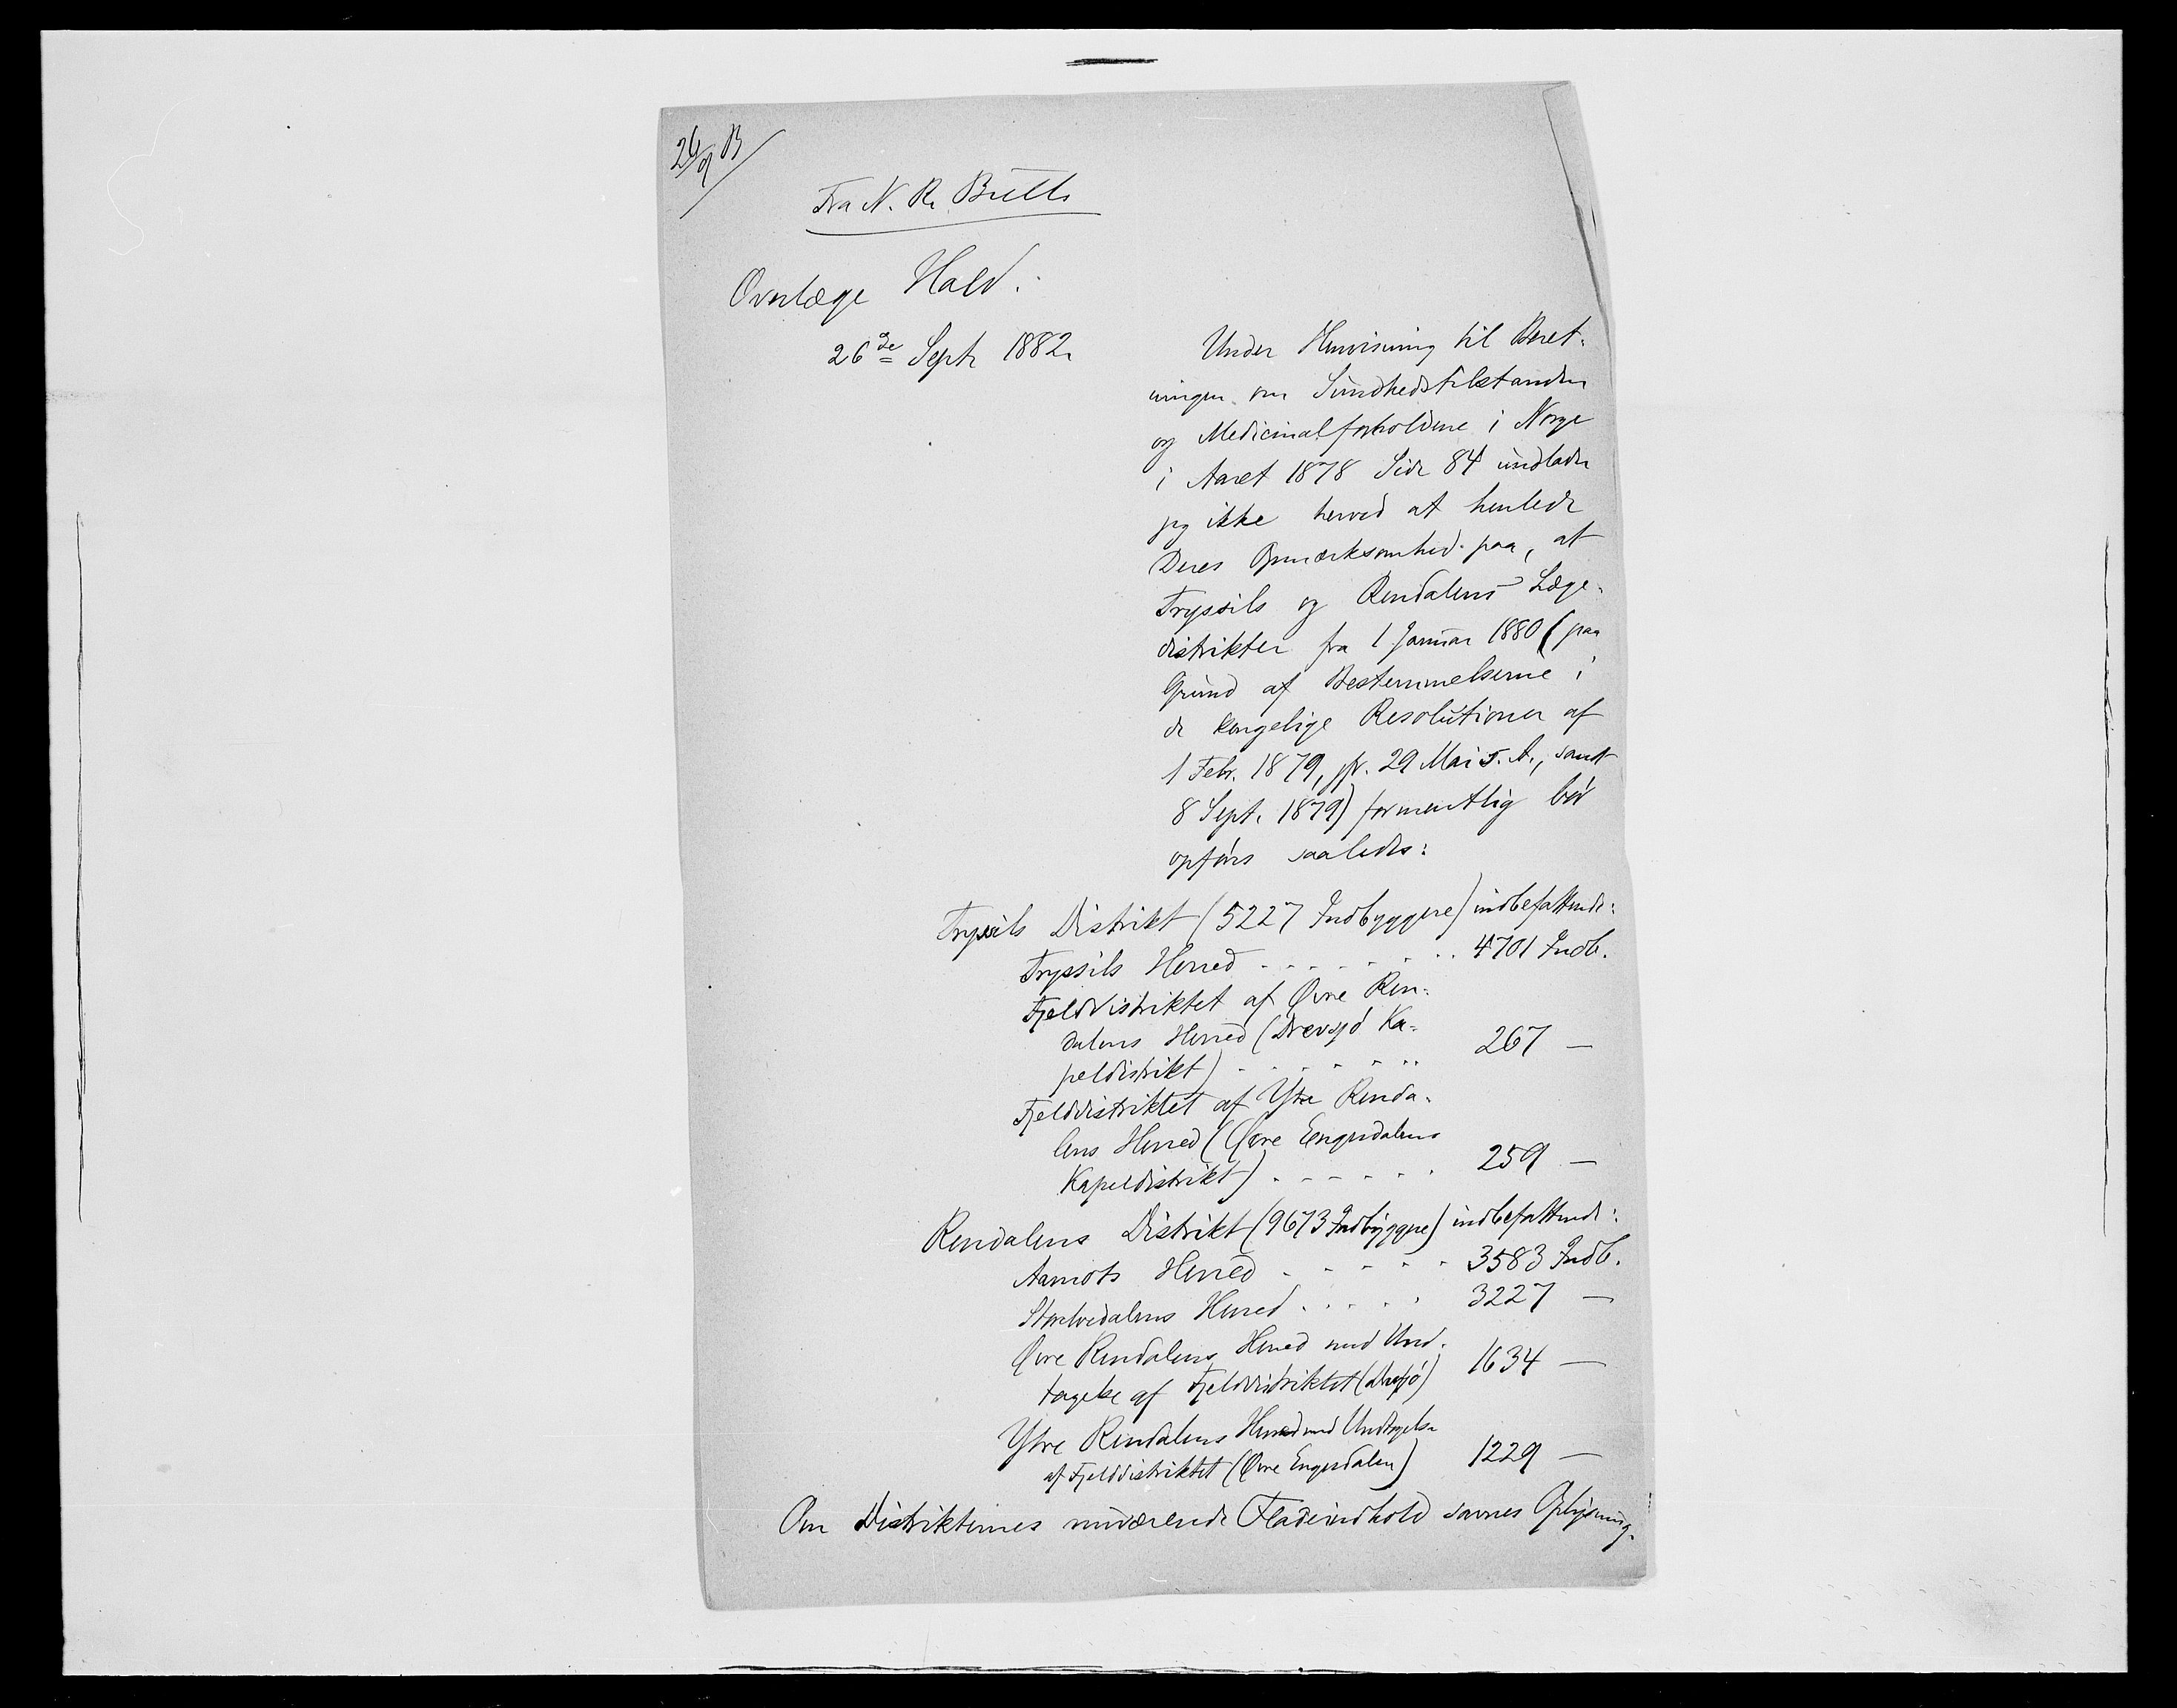 26/9 B
Fra N. R. Butts
Overlæge Hald.
26de Sept. 1882.
Under Henvisning til Beret-
ningen om Sundhedstilstanden
og Medicinalforholdene i Norge
i Aaret 1878 Side 84 undlader
jeg ikke herved at henlede
Deres Opmærksomhed paa, at
Tryssils og Rendalens Læge-
distrikter fra 1 Januar 1880 (paa
Grund af Bestemmelserne i
de kongelige Resolutioner af
1 Febr. 1879, jfr. 29 Mai s. A., samt
8 Sept. 1879) formentlig bör
opföres saaledes:
Tryssils Distrikt (5227 Indbyggere) indbefattende:
Tryssils Herred . . . . . . . . 4701 Indb.
Fjelddistriktet af Øvre Ren-
dalens Herred (Drevsjö Ka-
peldistrikt) . . . . . . . 267 —
Fjelddistriktet af Ytre Renda-
lens Herred (Øvre Engerdalens
Kapeldistrikt) . . . . . . 259 —
Rendalens Distrikt (9673 Indbyggere) indbefattende:
Aamots Herred . . . . . . 3583 Indb.
Storelvedalens Herred . . . . . 3227 —
Øvre Rendalens Herred med Und-
tagelse af Fjelddistriktet (Drevsjö) 1634 —
Ytre Rendalens Herred med Undtagelse
af Fjelddistriktet (Øvre Engerdalen) 1229 —
Om Distrikternes nuværende Fladeindhold savnes Oplysning.